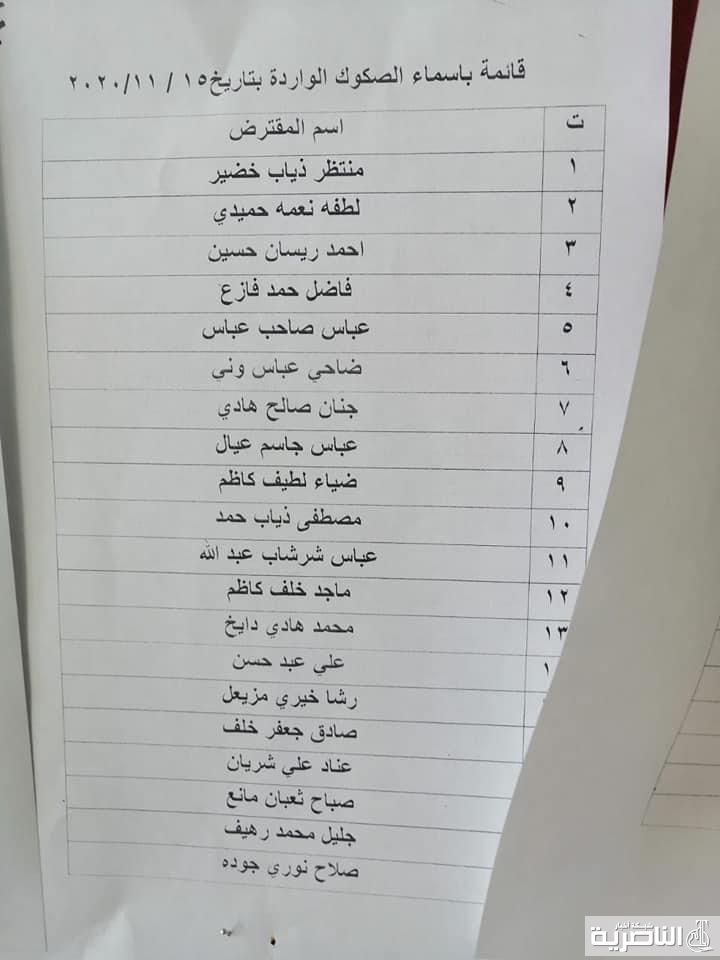 قائمة باسماء الصكوك الواردة بتاريخ١٥ / ٢٠٢٠/١١
ت اسم المقترض
١ منتظر ذياب خضير
٢ لطفه نعمه حميدي
٣ احمد ريسان حسين
٤ فاضل حمد فازع
٥ عباس صاحب عباس
٦ ضاحي عباس وني
٧ جنان صالح هادي
٨ عباس جاسم عيال
٩ ضياء لطيف كاظم
١٠ مصطفى ذياب حمد
١١ عباس شرشاب عبد الله
١٢ ماجد خلف كاظم
١٣ محمد هادي دايخ
١ علي عبد حسن
رشا خيري مزيعل
صادق جعفر خلف
عناد علي شريان
صباح ثعبان مانع
جليل محمد رهيف
صلاح نوري جوده
شبكة اخبار
الناصرية